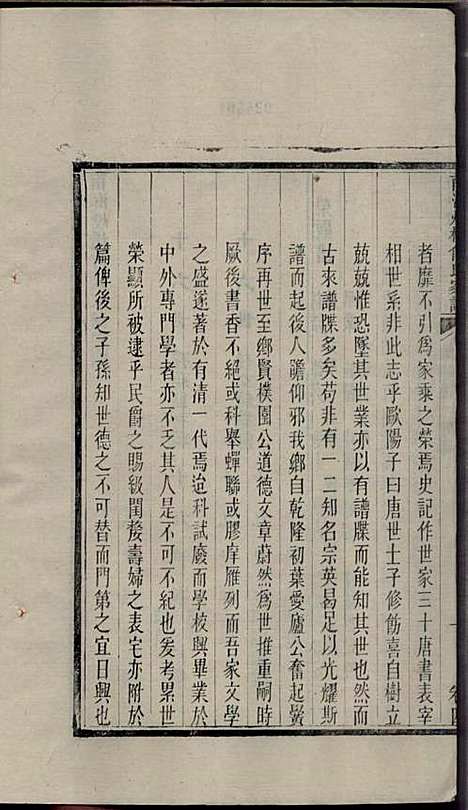 者靡不引為家乘之榮焉史記作世家三十唐書表宰
相世系非此志乎歐陽子曰唐世士子修飭喜自樹立
兢兢惟恐墜其世業亦以有譜牒而能知其世也然而
古來譜牒多矣苟非有一二知名宗英曷足以光耀斯
譜而起後人瞻仰邪我鄉自乾隆初葉愛廬公奮起黌
序再世至鄉賢樸園公道德文章蔚然為世推重嗣時
厥後書香不絕或科舉蟬聯或膠庠雁列而吾家文學
之盛遂著於有清一代焉迨科試廢而學校興畢業於
中外專門學者亦不乏其人是不可不紀也爰考累世
榮顯所被逮乎民爵之賜級閨嫠壽婦之表宅亦附於
篇俾後之子孫知世德之不可替而門第之宜日興也